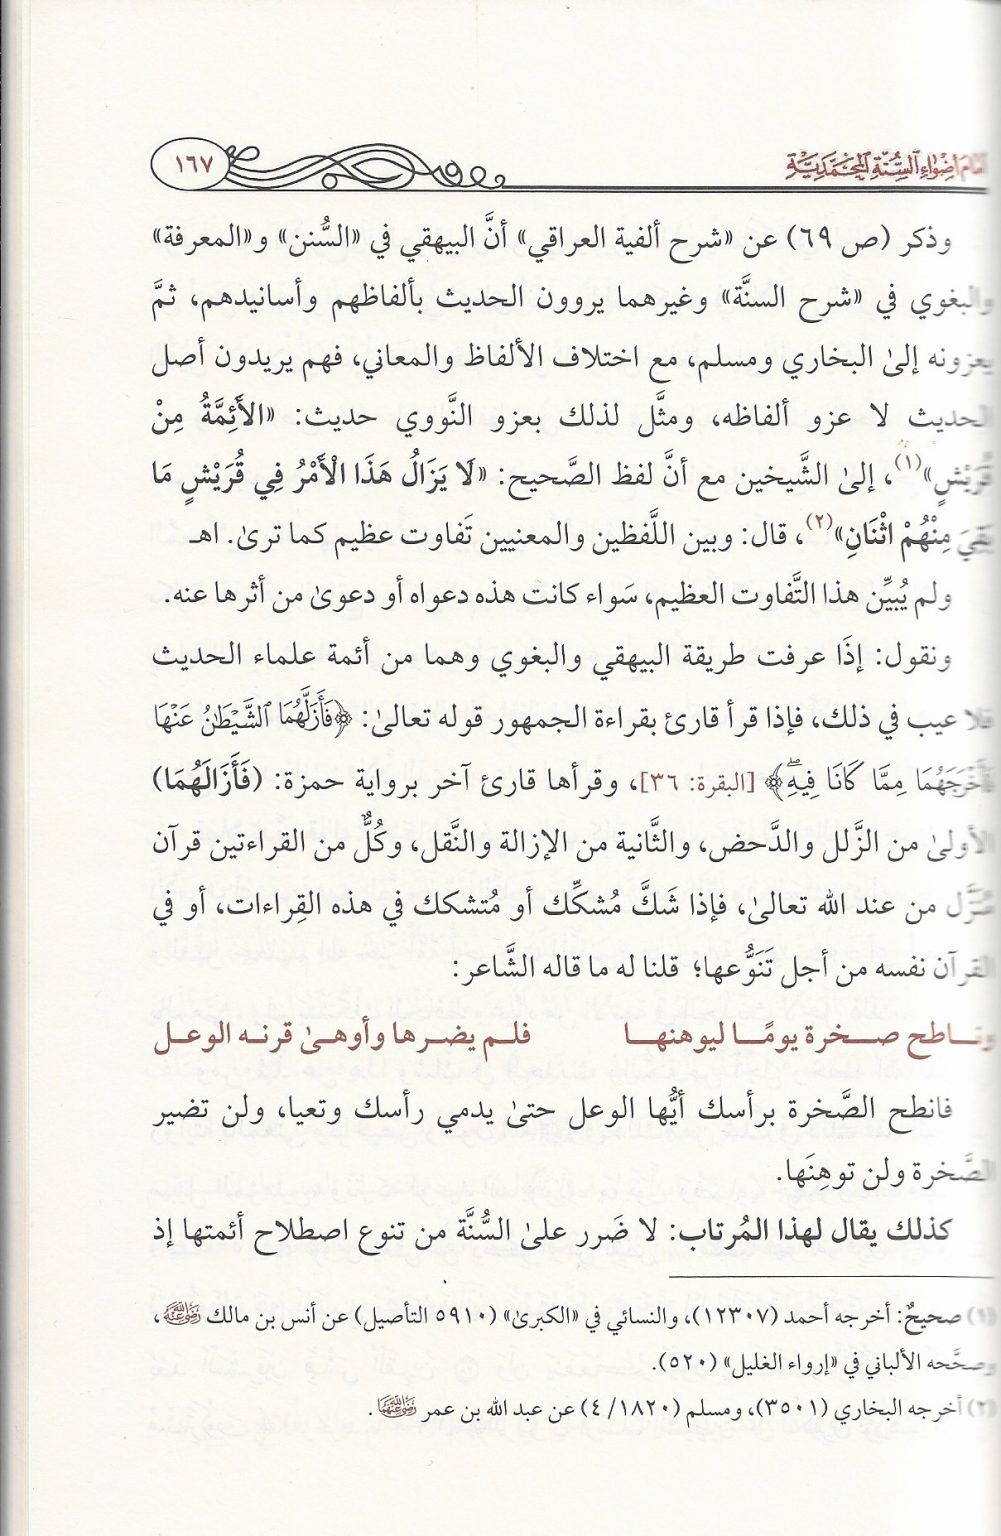 أضواء السنة المحمدية ١٦٧
وذكر (ص ٦٩) عن «شرح ألفية العراقي» أنَّ البيهقي في «السُّنن» و«المعرفة»
والبغوي في «شرح السنَّة» وغيرهما يروون الحديث بألفاظهم وأسانيدهم، ثمَّ
يعزونه إلىٰ البخاري ومسلم، مع اختلاف الألفاظ والمعاني، فهم يريدون أصل
الحديث لا عزو ألفاظه، ومثَّل لذلك بعزو النَّووي حديث: «الأَئِمَّةُ مِنْ
قُرَيْشٍ»(١)، إلىٰ الشَّيخين مع أنَّ لفظ الصَّحيح: «لَا يَزَالُ هَذَا الْأَمْرُ فِي قُرَيْشٍ مَا
بَقِيَ مِنْهُمْ اثْنَانِ»(٢)، قال: وبين اللَّفظين والمعنيين تَفاوت عظيم كما ترىٰ. اهـ
ولم يُبيِّن هذا التَّفاوت العظيم، سَواء كانت هذه دعواه أو دعوىٰ من أثرها عنه.
ونقول: إذَا عرفت طريقة البيهقي والبغوي وهما من أئمة علماء الحديث
فلا عيب في ذلك، فإذا قرأ قارئ بقراءة الجمهور قوله تعالىٰ: ﴿فَأَزَلَّهُمَا ٱلشَّيْطَٰنُ عَنْهَا
فَأَخْرَجَهُمَا مِمَّا كَانَا فِيهِۖ﴾ [البقرة: ٣٦]، وقرأها قارئ آخر برواية حمزة: (فَأَزَالَهُمَا)
الأولىٰ من الزَّلل والدَّحض، والثَّانية من الإزالة والنَّقل، وكُلٌّ من القراءتين قرآن
مُنَزَّل من عند الله تعالىٰ، فإذا شَكَّ مُشكِّك أو مُتشكك في هذه القِراءات، أو في
القرآن نفسه من أجل تَنَوُّعها؛ قلنا له ما قاله الشَّاعر:
وناطح صخرة يومًا ليوهنها فلم يضرها وأوهىٰ قرنه الوعل
فانطح الصَّخرة برأسك أيُّها الوعل حتىٰ يدمي رأسك وتعيا، ولن تضير
الصَّخرة ولن توهِنَها.
كذلك يقال لهذا المُرتاب: لا ضَرر علىٰ السُّنَّة من تنوع اصطلاح أئمتها إذ
(١) صحيحٌ: أخرجه أحمد (١٢٣٠٧)، والنسائي في «الكبرىٰ» (٥٩١٠ التأصيل) عن أنس بن مالك رضي الله عنه،
وصحَّحه الألباني في «إرواء الغليل» (٥٢٠).
(٢) أخرجه البخاري (٣٥٠١)، ومسلم (١٨٢٠/ ٤) عن عبد الله بن عمر رضي الله عنهما.